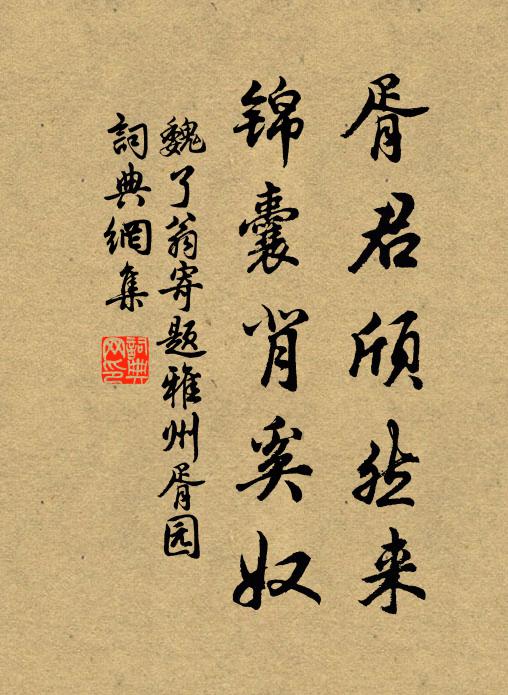 胥君頎然来
锦囊背奚奴
魏了翁寄题雅州胥园
詞典網集
詞典网印